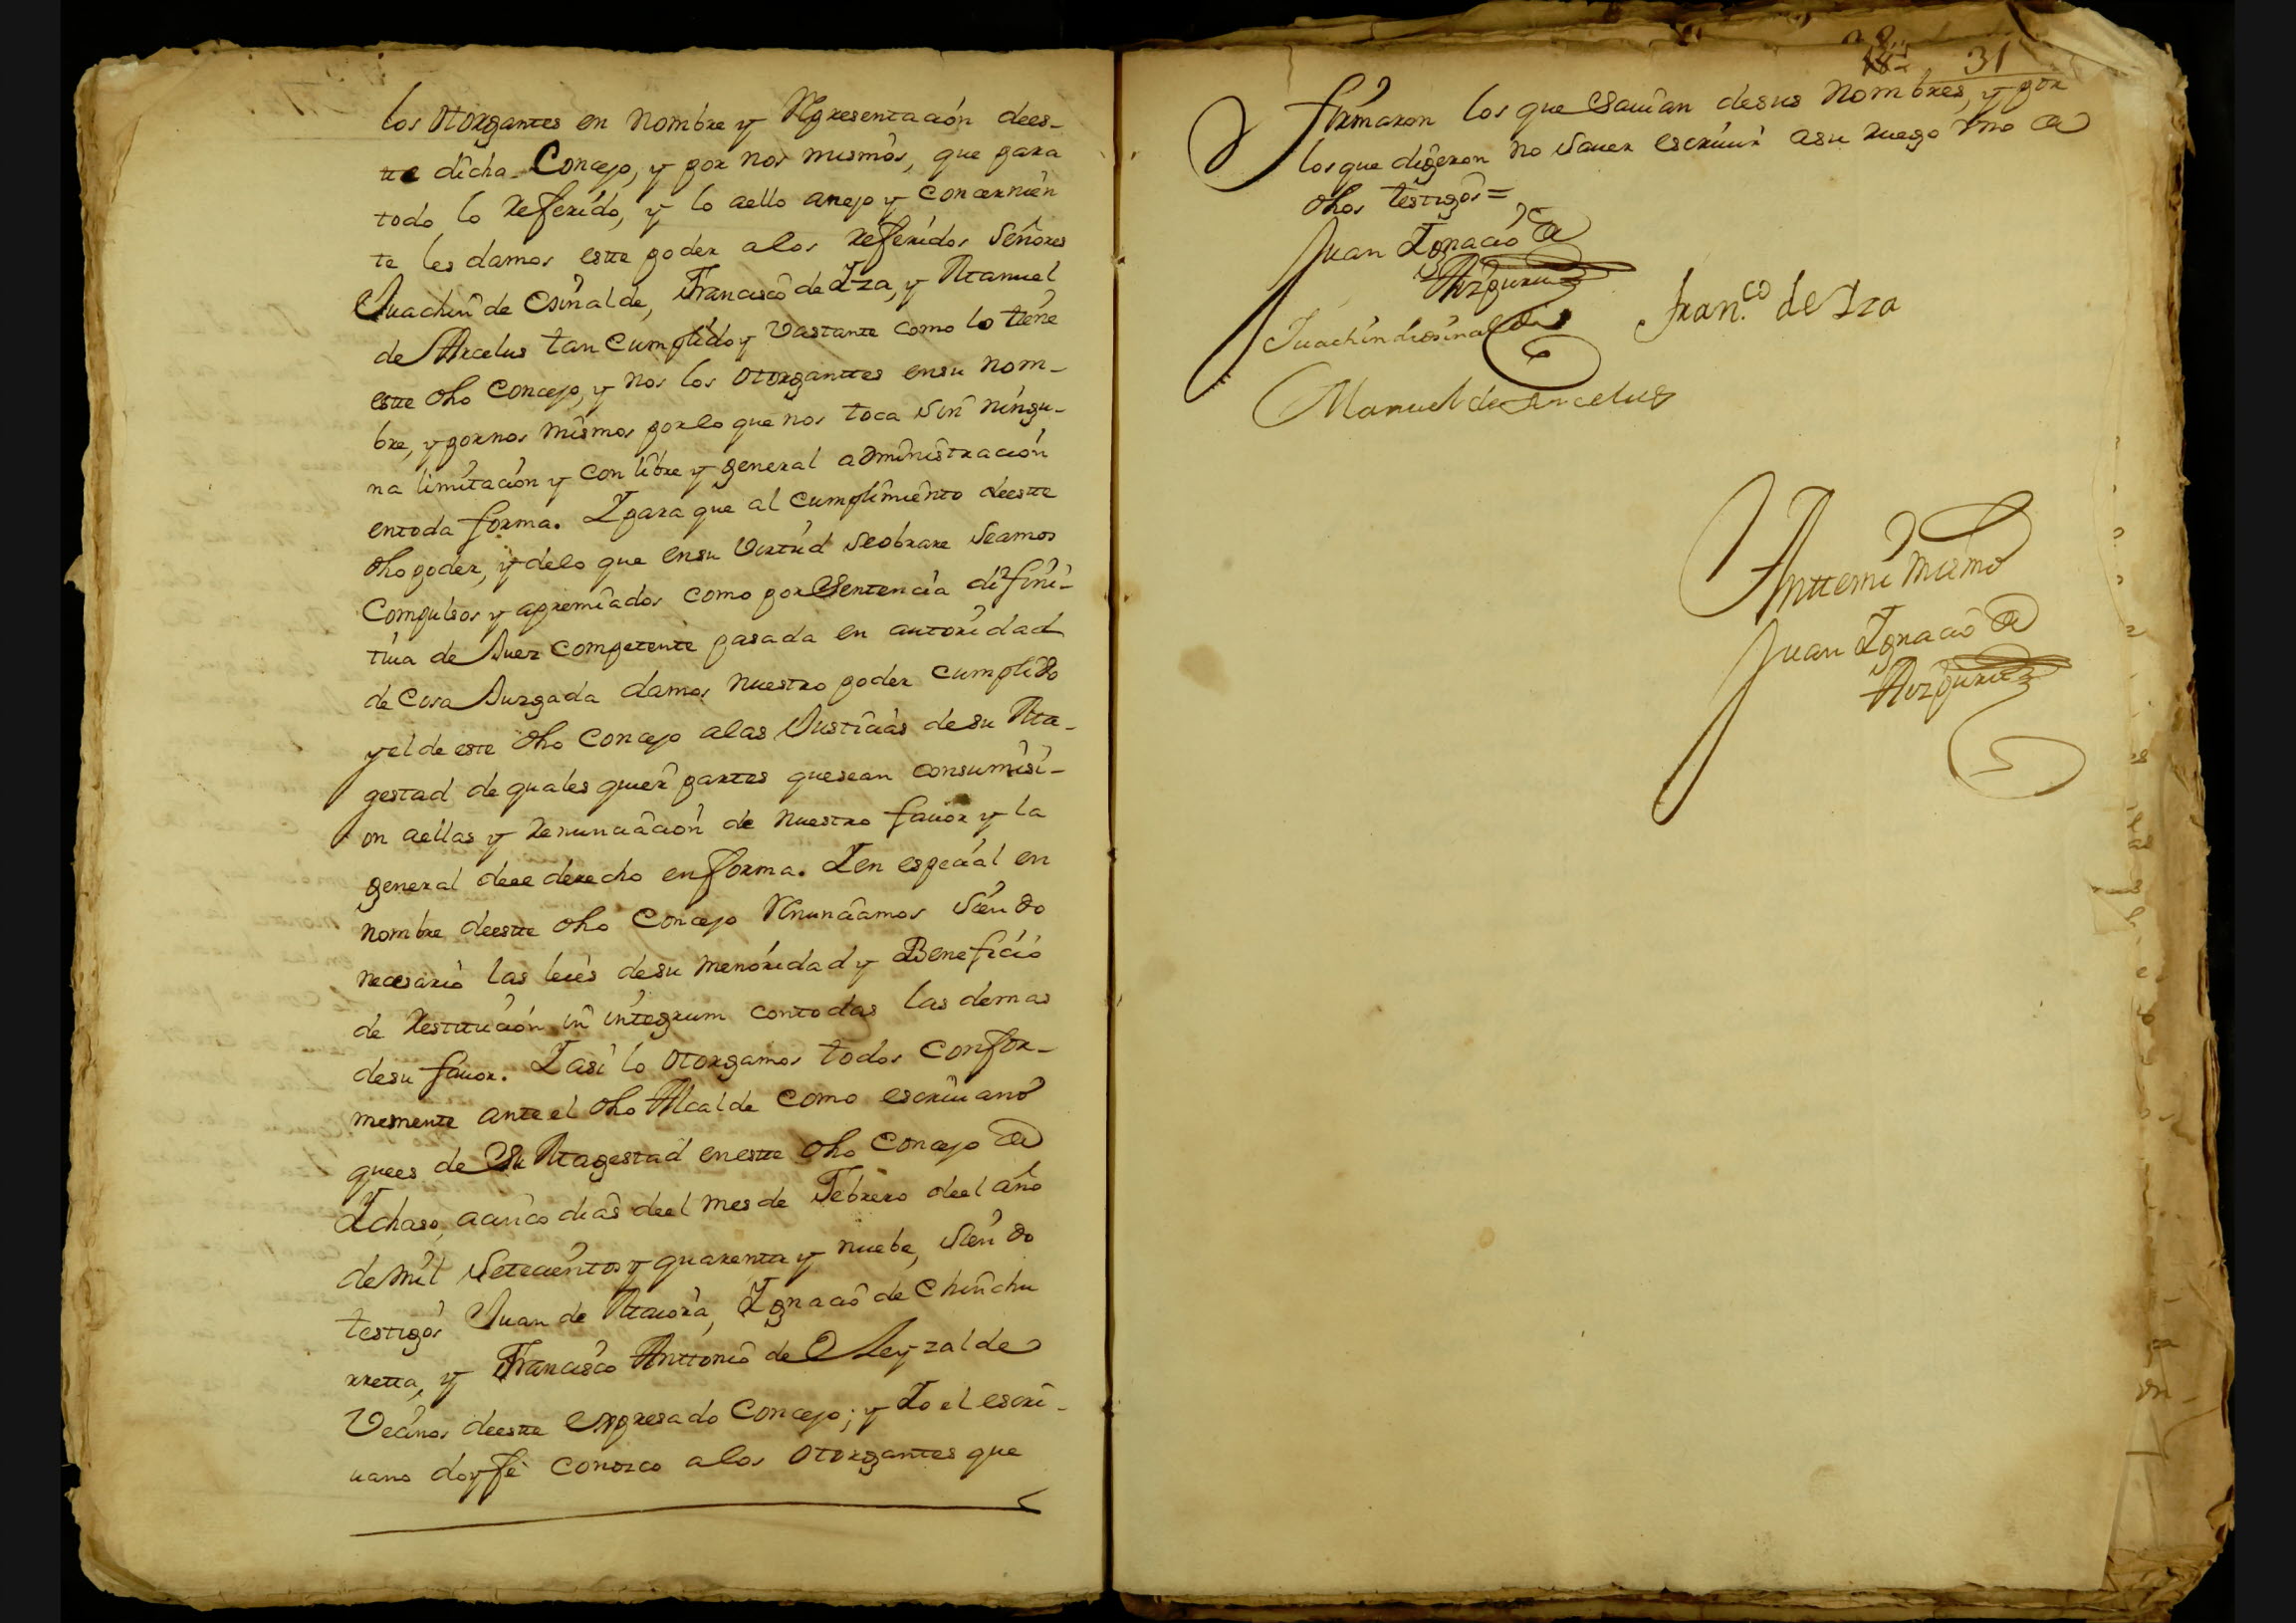 los otorgantes en nombre y Representación dees-
tte dicho Concejo, y por nos mismos, que para
todo lo Referido, y lo aello anejo y concernien
te les damos estte poder alos Referidos Señores
Juachin de Esinalde, Francisco de Iza, y Manuel
de Arcelus tan Cumplido y Vastante como lo tiene
estte dho Concejo, y nos los otorganttes ensu nom-
bre, y por nos mismos porlo que nos toca sin ningu-
na limitación y con libre y general administración
entoda forma. Ipara que al cumplimiento deestte
dho poder, y delo que ensu Virtud seobrare seamos
Compulsos y apremiados como por Sentencia difini-
tiua de Juez competente pasada en autoridad
de Cosa Juzgada damos nuestro poder cumplido
y el de este dho Concejo alas Justicias de su Ma-
gestad de quales quier partes quesean consumisi-
on aellas y Renunciación de nuestro fauor y la
general deee derecho en forma. Ien especial en
nombre deestte dho Concejo Renunciamos siendo
necesario las leies desu menoridad y Beneficio
de Restitución in integrum contodas las demas
desu fauor. Iasi lo otorgamos todos confor-
memente ante el dho Alcalde como escriuano
quees de Su Magestad enestte dho Concejo de
Ichaso, acinco dias deel mes de Febrero deel año
de mil Setecientos y quarenta y nuebe, siendo
testigos Juan de Maiora, Ignacio de Chinchu
rretta, y Francisco Anttonio de Oleyzalde
Vecinos deestte expresado Concejo; y Io el escri-
uano doy fè conozco alos otorgantes que
31
firmaron los que Sauian desus nombres, y por
los que dijeron no sauer escriuir asu ruego vno de
dhos testigos =
Juan Ignacio de
Aizpuru
Juachin de esinalde
Fran.co de Iza
Manuel de Arcelus
Anttemi mismo
Juan Ignacio de
Aizpuru